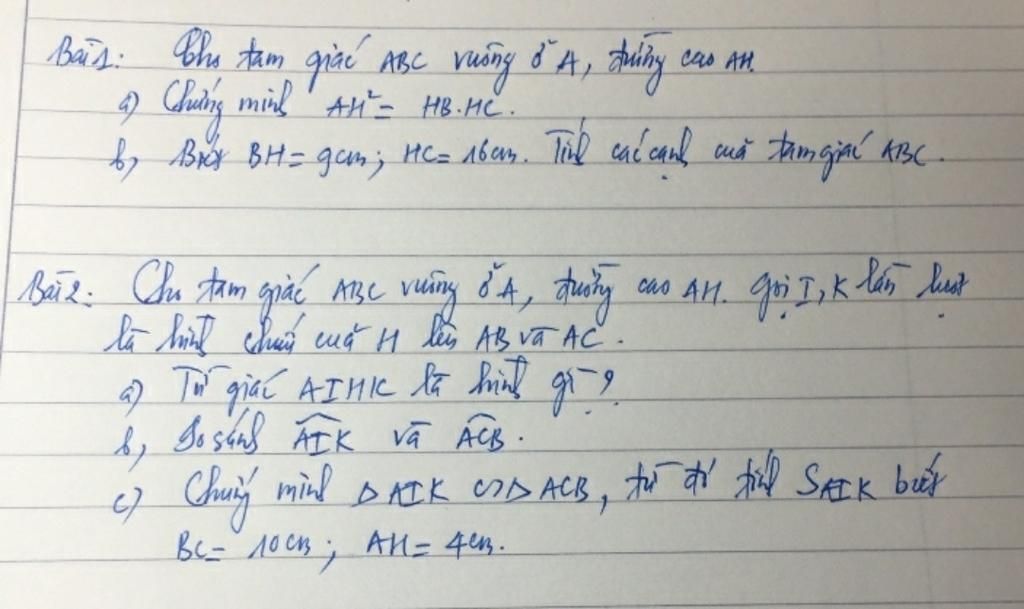 Bài 1: Cho tam giác ABC vuông ở A, đường cao AH.
a) Chứng minh AH² = HB.HC.
b, Biết BH = 9cm; HC = 16cm. Tính các cạnh của tam giác ABC.
Bài 2: Cho tam giác ABC vuông ở A, đường cao AH. Gọi I, K lần lượt
là hình chiếu của H lên AB và AC.
a) Tứ giác AIHK là hình gì?
b, So sánh \widehat{AIK} và \widehat{ACB}.
c) Chứng minh ΔAIK ∽ ΔACB, từ đó tính SAIK biết
BC = 10cm; AH = 4cm.